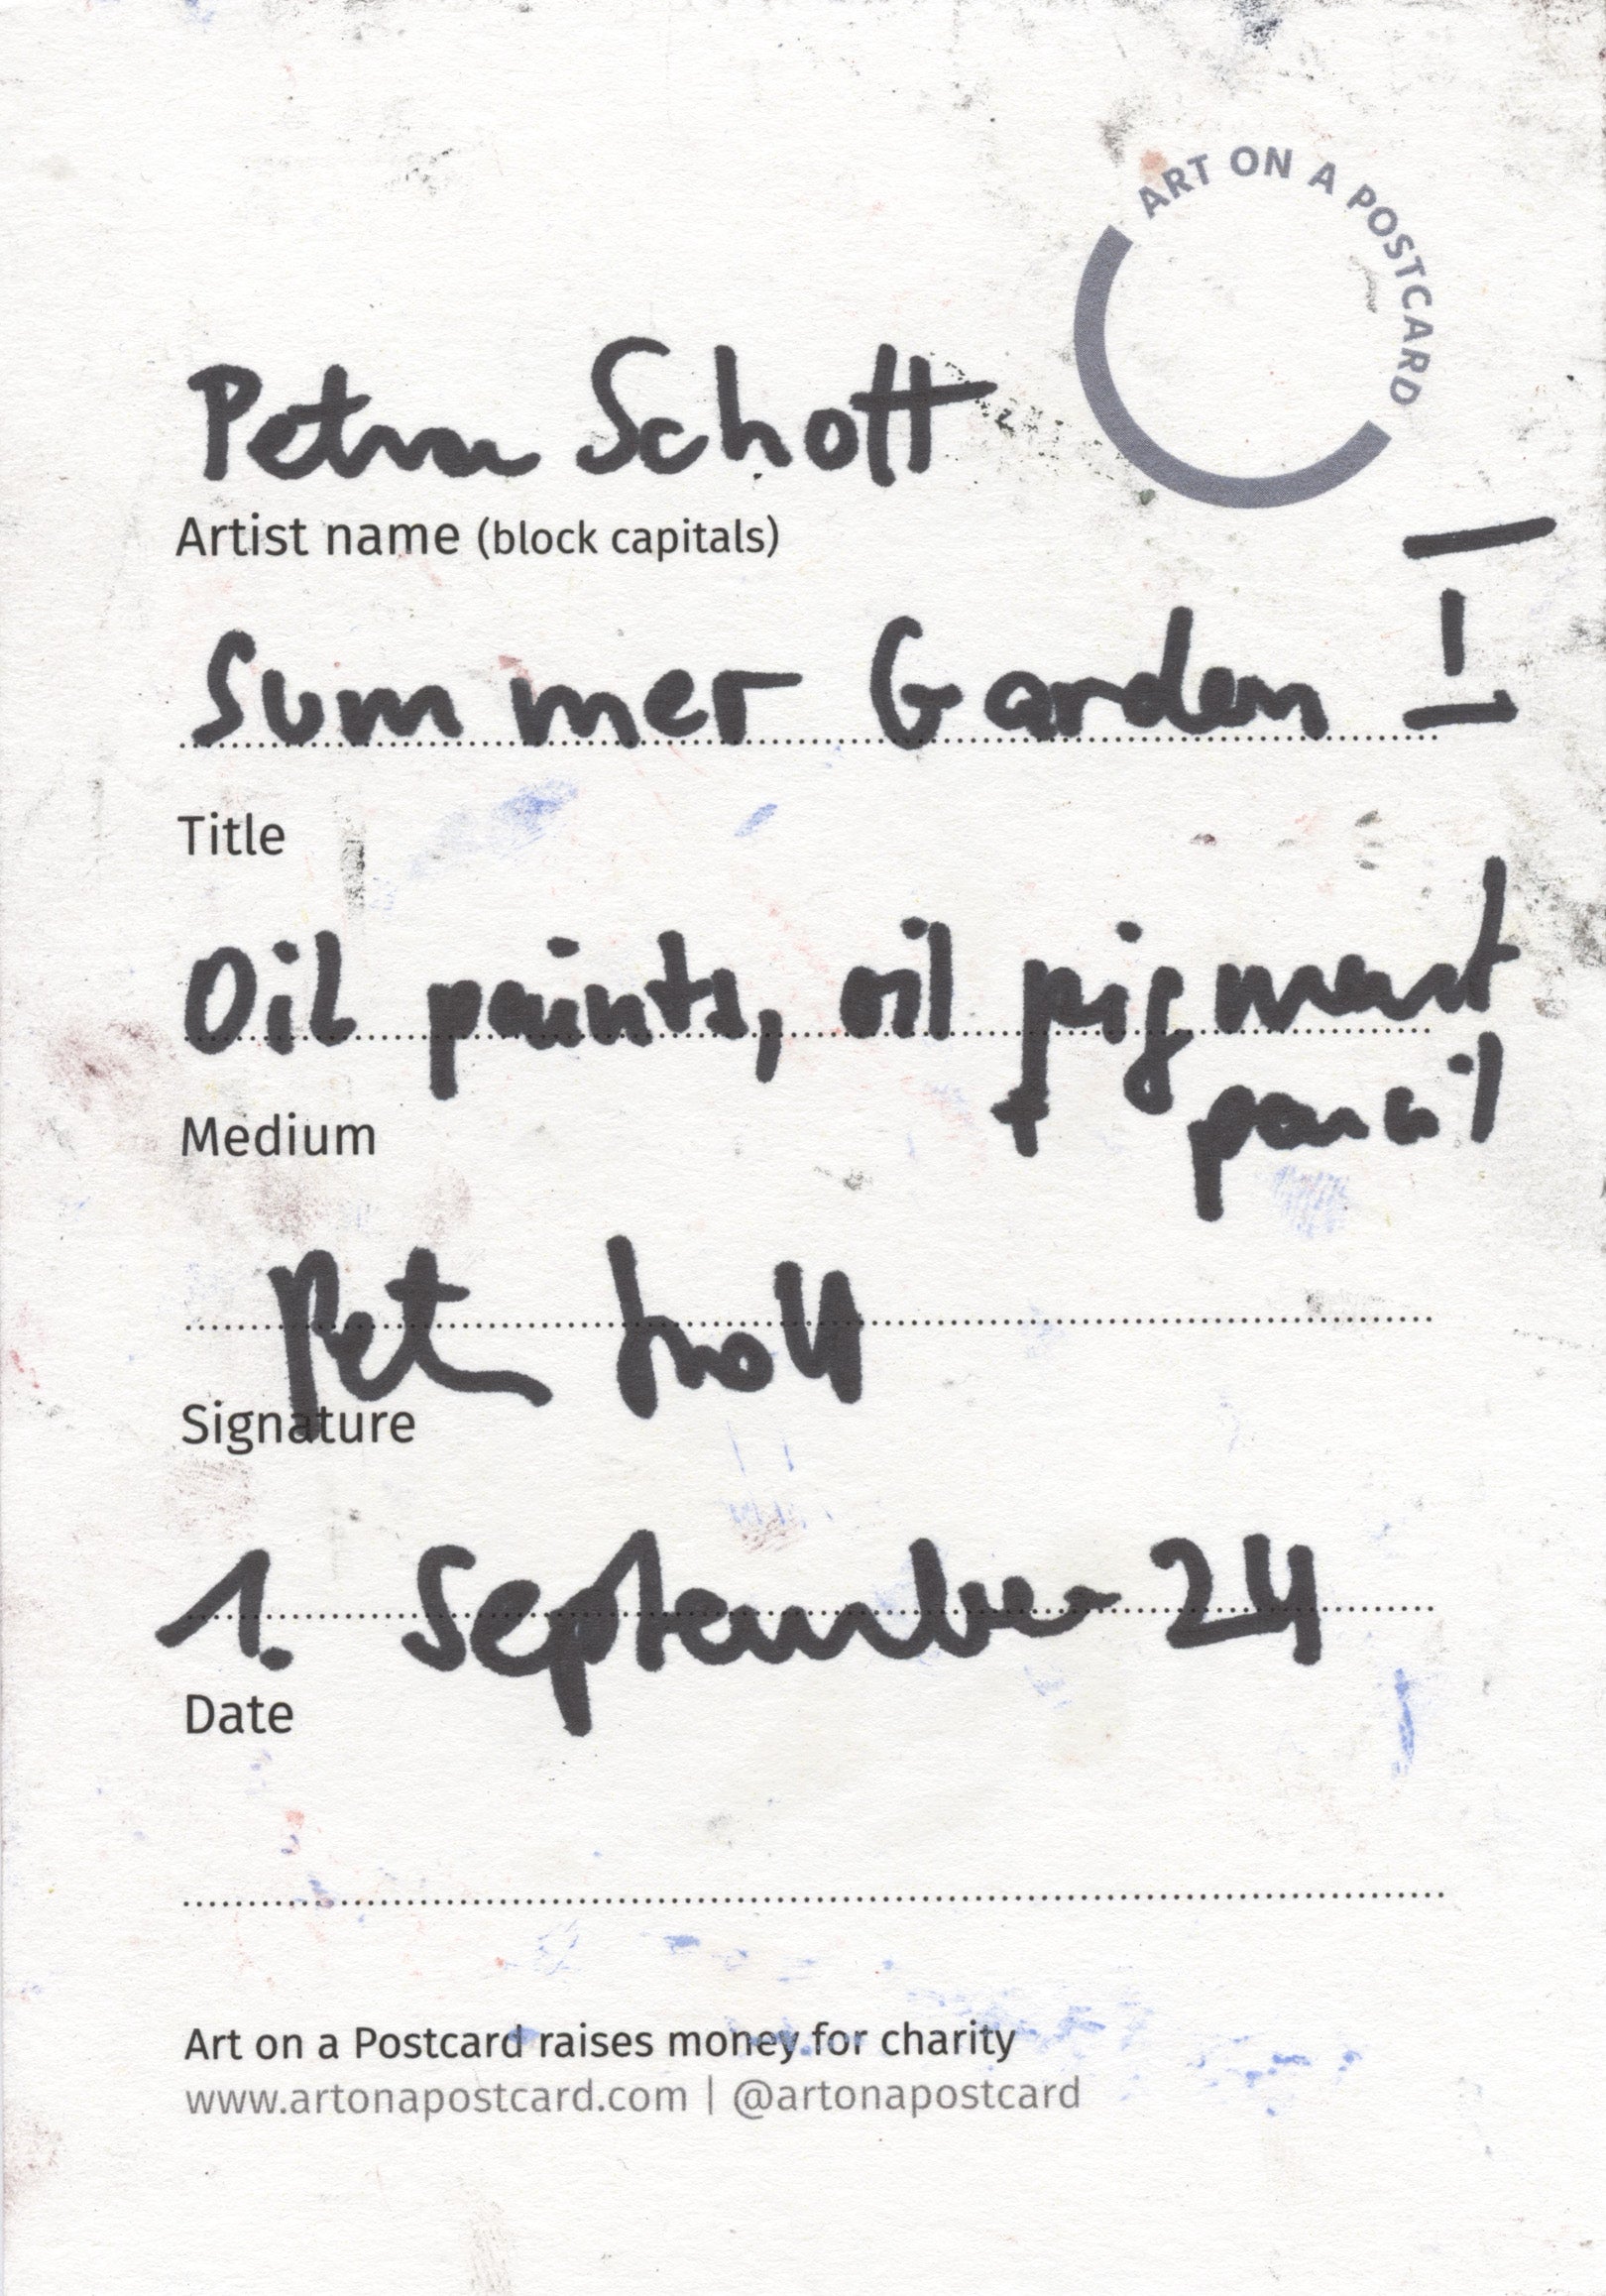 ART ON A POSTCARD
Petra Schott
Artist name (block capitals)
Summer Garden I
Title
Oil paints, oil pigment
+ pencil
Medium
Petra Schott
Signature
1. September 24
Date
Art on a Postcard raises money for charity
www.artonapostcard.com | @artonapostcard